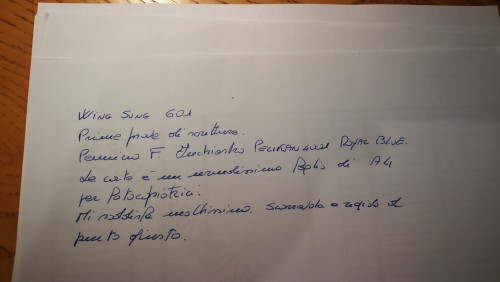 WING SUNG 601
Prime prove di scrittura.
Pennino F. Inchiostro PELIKAN 4001 ROYAL BLUE.
La carta è un normalissimo foglio di A4
per fotocopiatrici.
Mi soddisfa moltissimo. Scorrevole e rigido al
punto giusto.